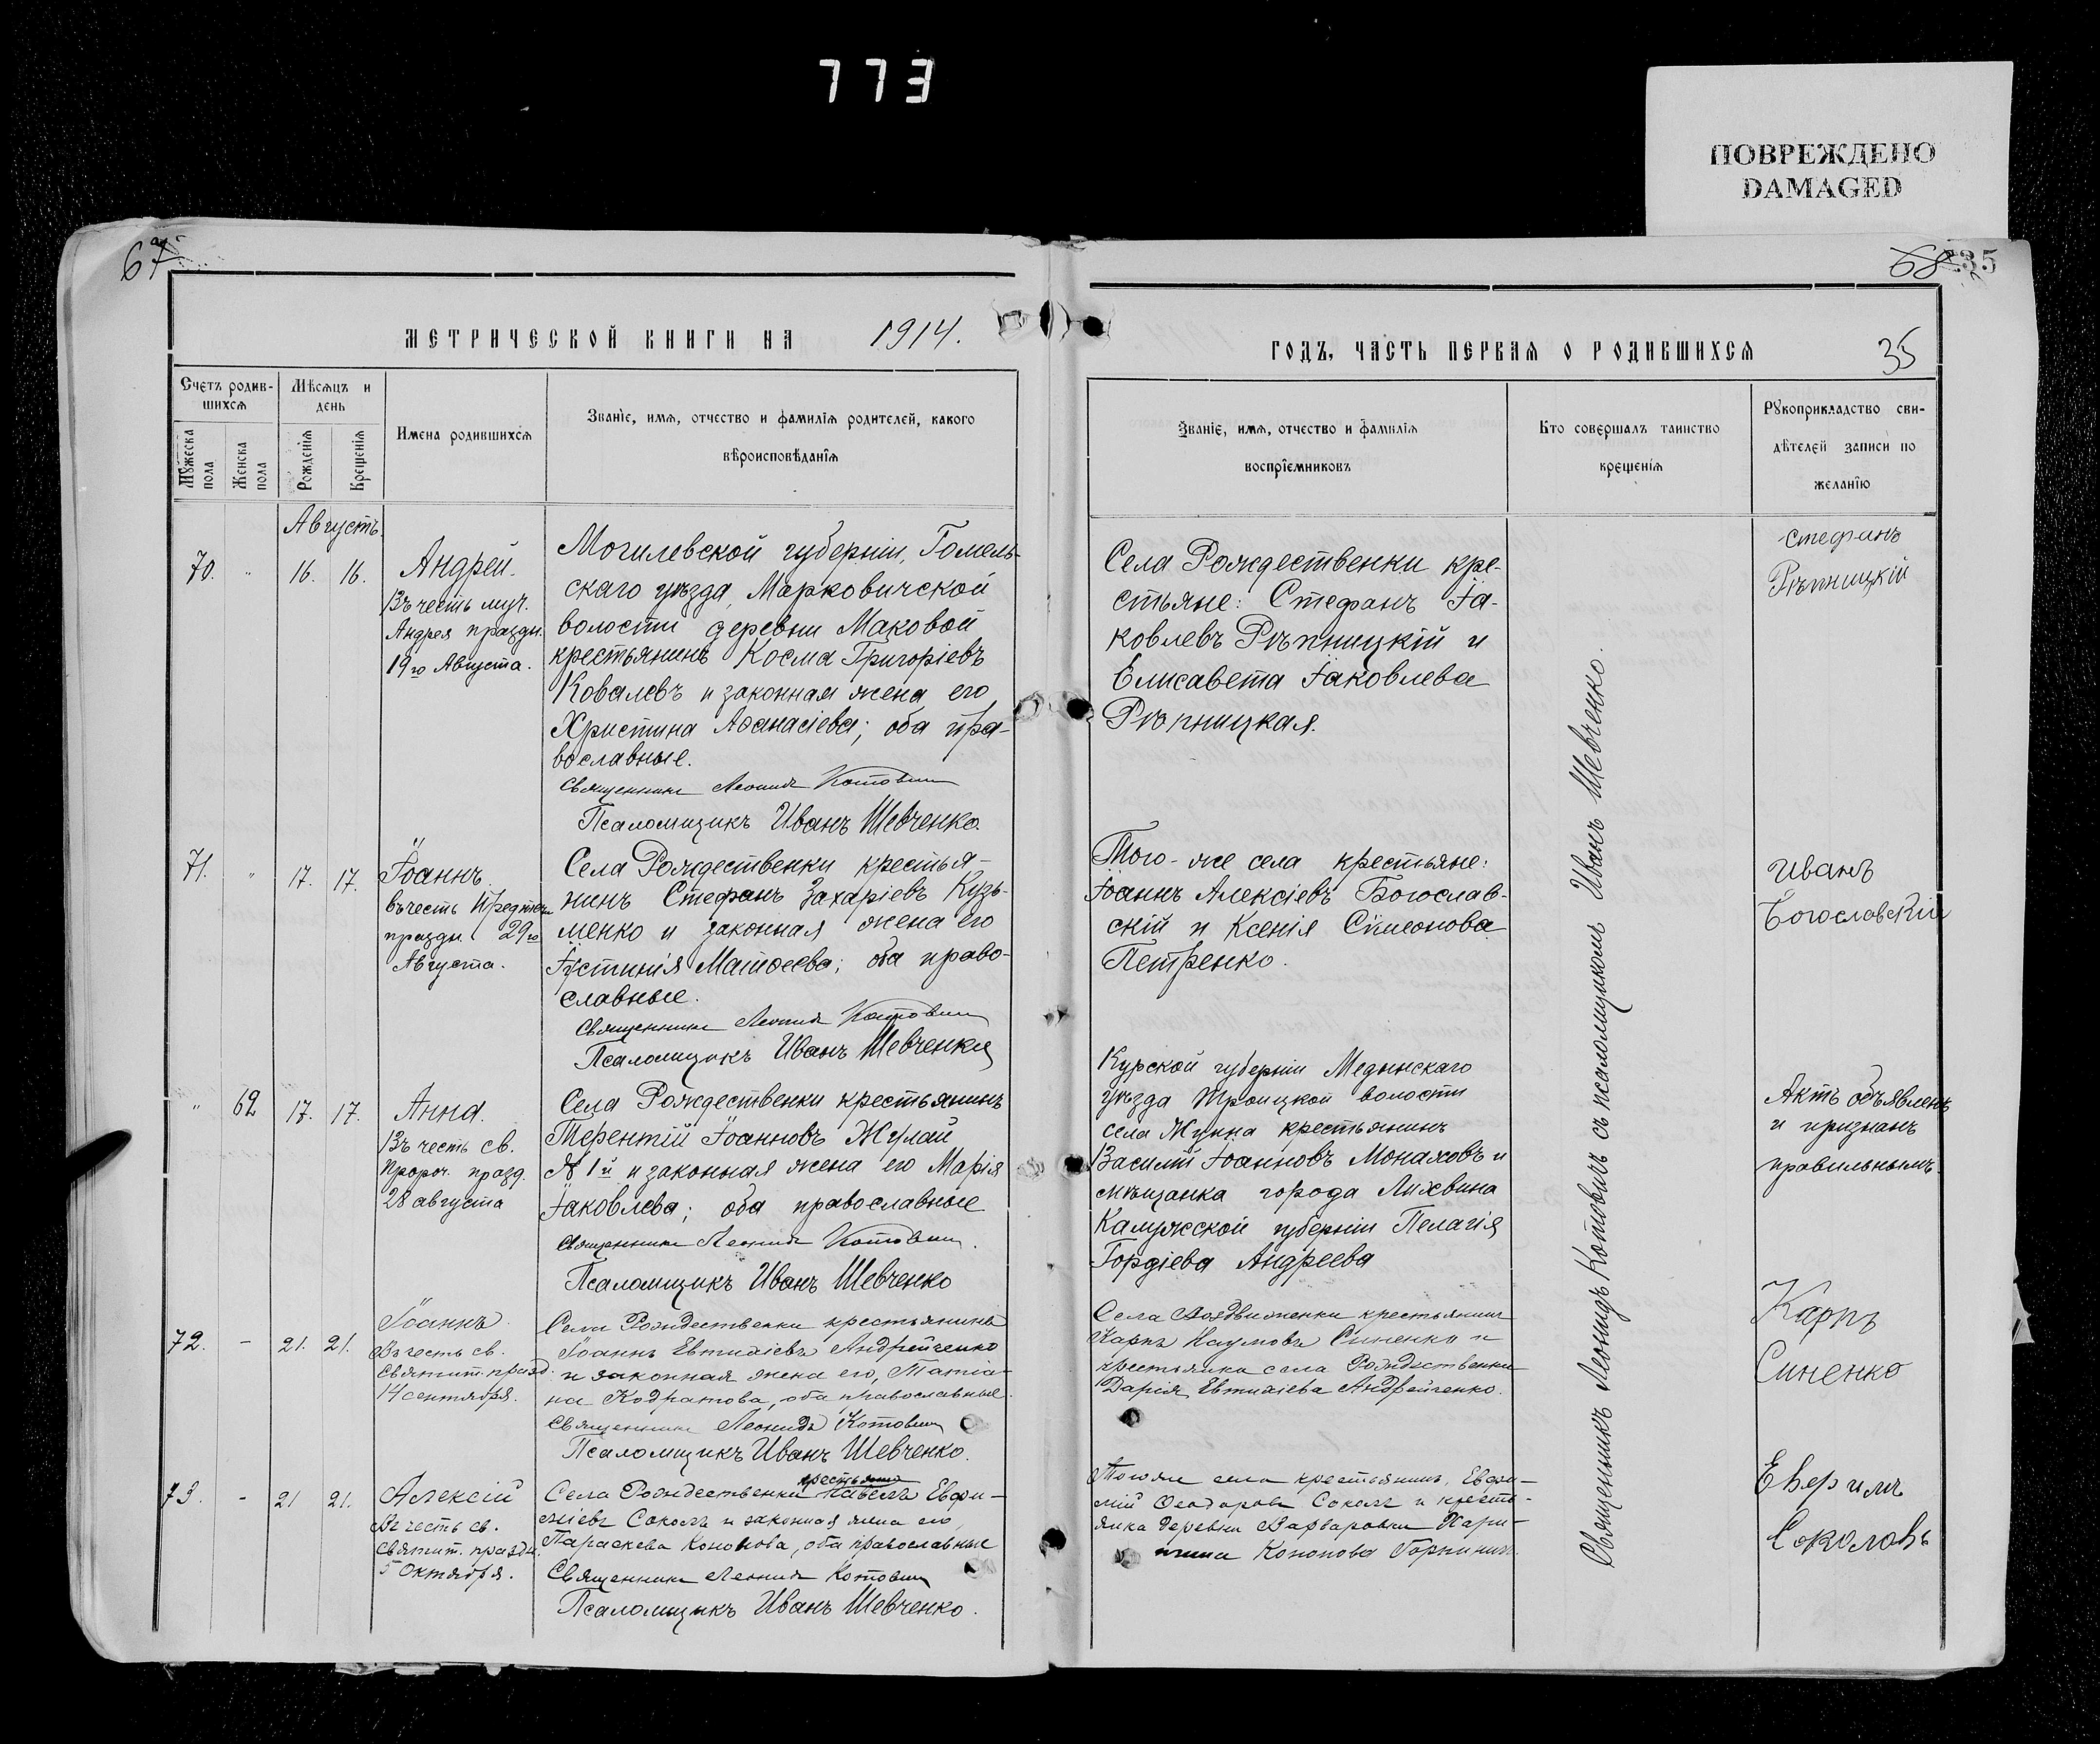 773
ПОВРЕЖДЕНО
DAMAGED
67
68
35
МЕТРИЧЕСКОЙ КНИГИ НА 1914.
ГОДЪ, ЧАСТЬ ПЕРВАЯ О РОДИВШИХСЯ
35
Счетъ родив-
шихся
Мужеска пола
Женска пола
Мѣсяцъ и
день
Рожденія
Крещенія
Имена родившихся
Званіе, имя, отчество и фамилія родителей, какого
вѣроисповѣданія
Званіе, имя, отчество и фамилія
воспріемниковъ
Кто совершалъ таинство
крещенія
Рукоприкладство сви-
дѣтелей записи по
желанію
Августъ.
70. " 16. 16.
Андрей.
Въ честь муч.
Андрея праздн.
19го Августа.
Могилевской губерніи, Гомель-
скаго уѣзда, Марковичской
волости деревни Маковой
крестьянинъ Косма Григоріевъ
Ковалевъ и законная жена его
Христина Аѳанасіева; оба пра-
вославные.
Священникъ Леонидъ Котовичъ
Псаломщикъ Иванъ Шевченко.
Села Рождественки кре-
стьяне: Стефанъ Іа-
ковлевъ Рѣпницкій и
Елисавета Іаковлева
Рѣпницкая.
Стефанъ
Рѣпницкій
71. " 17. 17.
Іоаннъ.
въ честь Предтечи
праздн. 29го
Августа.
Села Рождественки крестья-
нинъ Стефанъ Захаріевъ Кузь-
менко и законная жена его
Іустинія Матѳеева; оба право-
славные.
Священникъ Леонидъ Котовичъ
Псаломщикъ Иванъ Шевченко
Того-же села крестьяне:
Іоаннъ Алексіевъ Богослав-
скій и Ксенія Сѵмеонова
Петренко.
Иванъ
Богославскій
" 62 17. 17.
Анна.
Въ честь св.
Пророч. празд.
28 августа
Села Рождественки крестьянинъ
Терентій Іоанновъ Жулай
№ 1й и законная жена его Марія
Іаковлева; оба православные
Священникъ Леонидъ Котовичъ.
Псаломщикъ Иванъ Шевченко
Курской губерніи Медынскаго
уѣзда Троицкой волости
села Жунна крестьянинъ
Василій Іоанновъ Монаховъ и
мѣщанка города Лихвина
Калужской губерніи Пелагія
Гордіева Андреева
Актъ объявленъ
и признанъ
правильнымъ.
72. - 21. 21.
Іоаннъ.
Въ честь св.
Святит. празд.
14 сентября.
Села Рождественки крестьянинъ
Іоаннъ Евтихіевъ Андрейченко
и законная жена его, Татіа-
на Кодратова, оба православные.
Священникъ Леонидъ Котовичъ
Псаломщикъ Иванъ Шевченко.
Села Воздвиженки крестьянинъ
Карпъ Наумовъ Синенко и
крестьянка села Рождественки
Дарія Евтихіева Андрейченко.
Карпъ
Синенко
73. - 21 21.
Алексій
Въ честь св.
Святит. праздн.
5 Октября.
крестьянинъ
Села Рождественки Павелъ Евфи-
міевъ Соколъ и законная жена его,
Параскева Кононова, оба православные
Священникъ Леонидъ Котовичъ
Псаломщикъ Иванъ Шевченко.
Тогоже села крестьянинъ, Евфи-
мій Ѳеодоровъ Соколъ и кресть-
янка деревни Варваровки Хари-
тина Кононова
Соколовъ
Священникъ Леонидъ Котовичъ съ псаломщикомъ Иванъ Шевченко.